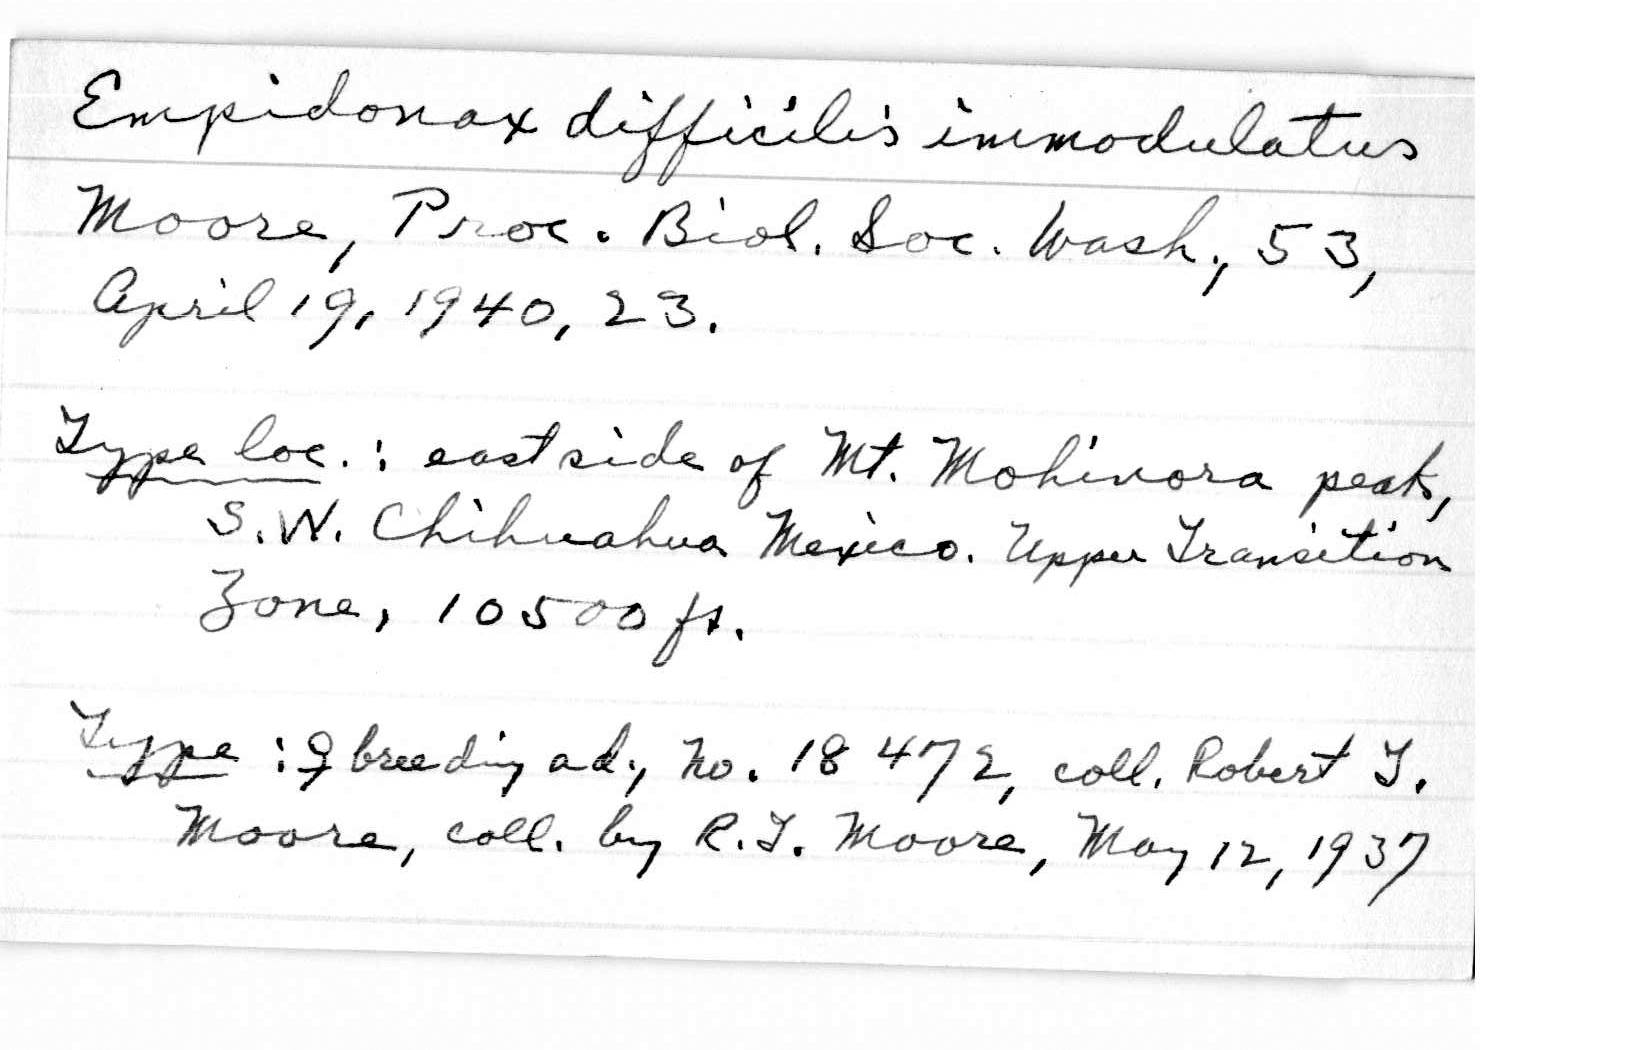 Empidonax difficilis immodulatus
Moore, Proc. Biol. Soc. Wash., 53,
April 19, 1940, 23.
Type loc.: east side of Mt. Mohinora peak,
S.W. Chihuahua Mexico. Upper Transition
Zone, 10500 ft.
Type: ♀ breeding ad., no. 18472, coll. Robert T.
Moore, coll. by R.T. Moore, May 12, 1937